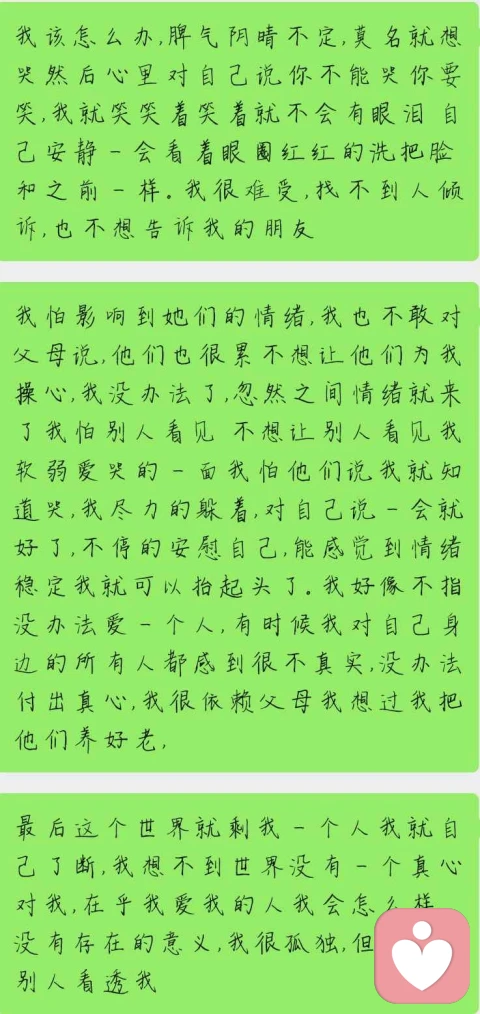 我该怎么办,脾气阴晴不定,莫名就想
哭然后心里对自己说你不能哭你要
笑,我就笑笑着笑着就不会有眼泪 自
己安静一会看着眼圈红红的洗把脸
和之前一样。我很难受,找不到人倾
诉,也不想告诉我的朋友
我怕影响到她们的情绪,我也不敢对
父母说,他们也很累不想让他们为我
操心,我没办法了,忽然之间情绪就来
了我怕别人看见 不想让别人看见我
软弱爱哭的一面我怕他们说我就知
道哭,我尽力的躲着,对自己说一会就
好了,不停的安慰自己,能感觉到情绪
稳定我就可以抬起头了。我好像不指
没办法爱一个人,有时候我对自己身
边的所有人都感到很不真实,没办法
付出真心,我很依赖父母我想过我把
他们养好老,
最后这个世界就剩我一个人我就自
己了断,我想不到世界没有一个真心
对我,在乎我爱我的人我会怎么样
没有存在的意义,我很孤独,但
别人看透我